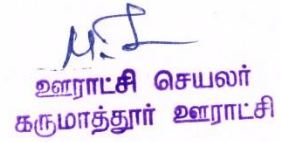 ஊராட்சி செயலர்
கருமாத்தூர் ஊராட்சி